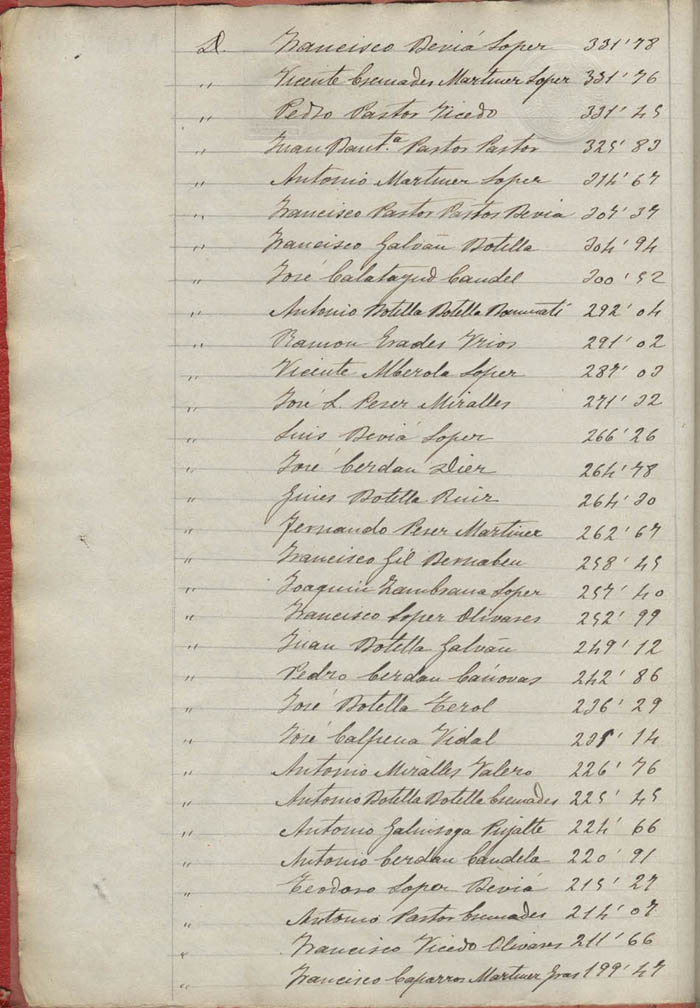 D. Francisco Beviá Soper 331'78
" Vicente Cremades Martiner Soper 331'76
" Pedro Pastor Vicedo 331'45
" Juan Baut.ª Pastor Pastor 325'83
" Antonio Martiner Soper 314'67
" Francisco Pastor Pastor Beviá 307'37
" Francisco Galván Botella 304'94
" José Calatayud Candel 300'52
" Antonio Botella Botella 292'04
" Ramon Erades Vrios 291'02
" Vicente Alberola Soper 287'03
" José L. Perer Miralles 271'32
" Luis Beviá Soper 266'26
" José Cerdan Dier 264'78
" Gines Botella Ruir 264'30
" Fernando Perer Martiner 262'67
" Francisco Gil Bernabeu 258'45
" Joaquin Zambrana Soper 257'40
" Francisco Soper Olivares 252'99
" Juan Botella Galván 249'12
" Pedro Cerdan Cánovas 242'86
" José Botella Terol 236'29
" José Calpena Vidal 235'14
" Antonio Miralles Valero 226'76
" Antonio Botella Botella Cremades 225'45
" Antonio Galvisoga Pujalte 224'66
" Antonio Cerdan Candela 220'91
" Teodoro Soper Beviá 215'27
" Antonio Pastor Cremades 214'07
" Francisco Vicedo Olivares 211'66
" Francisco Caparros Martiner Gras 199'47